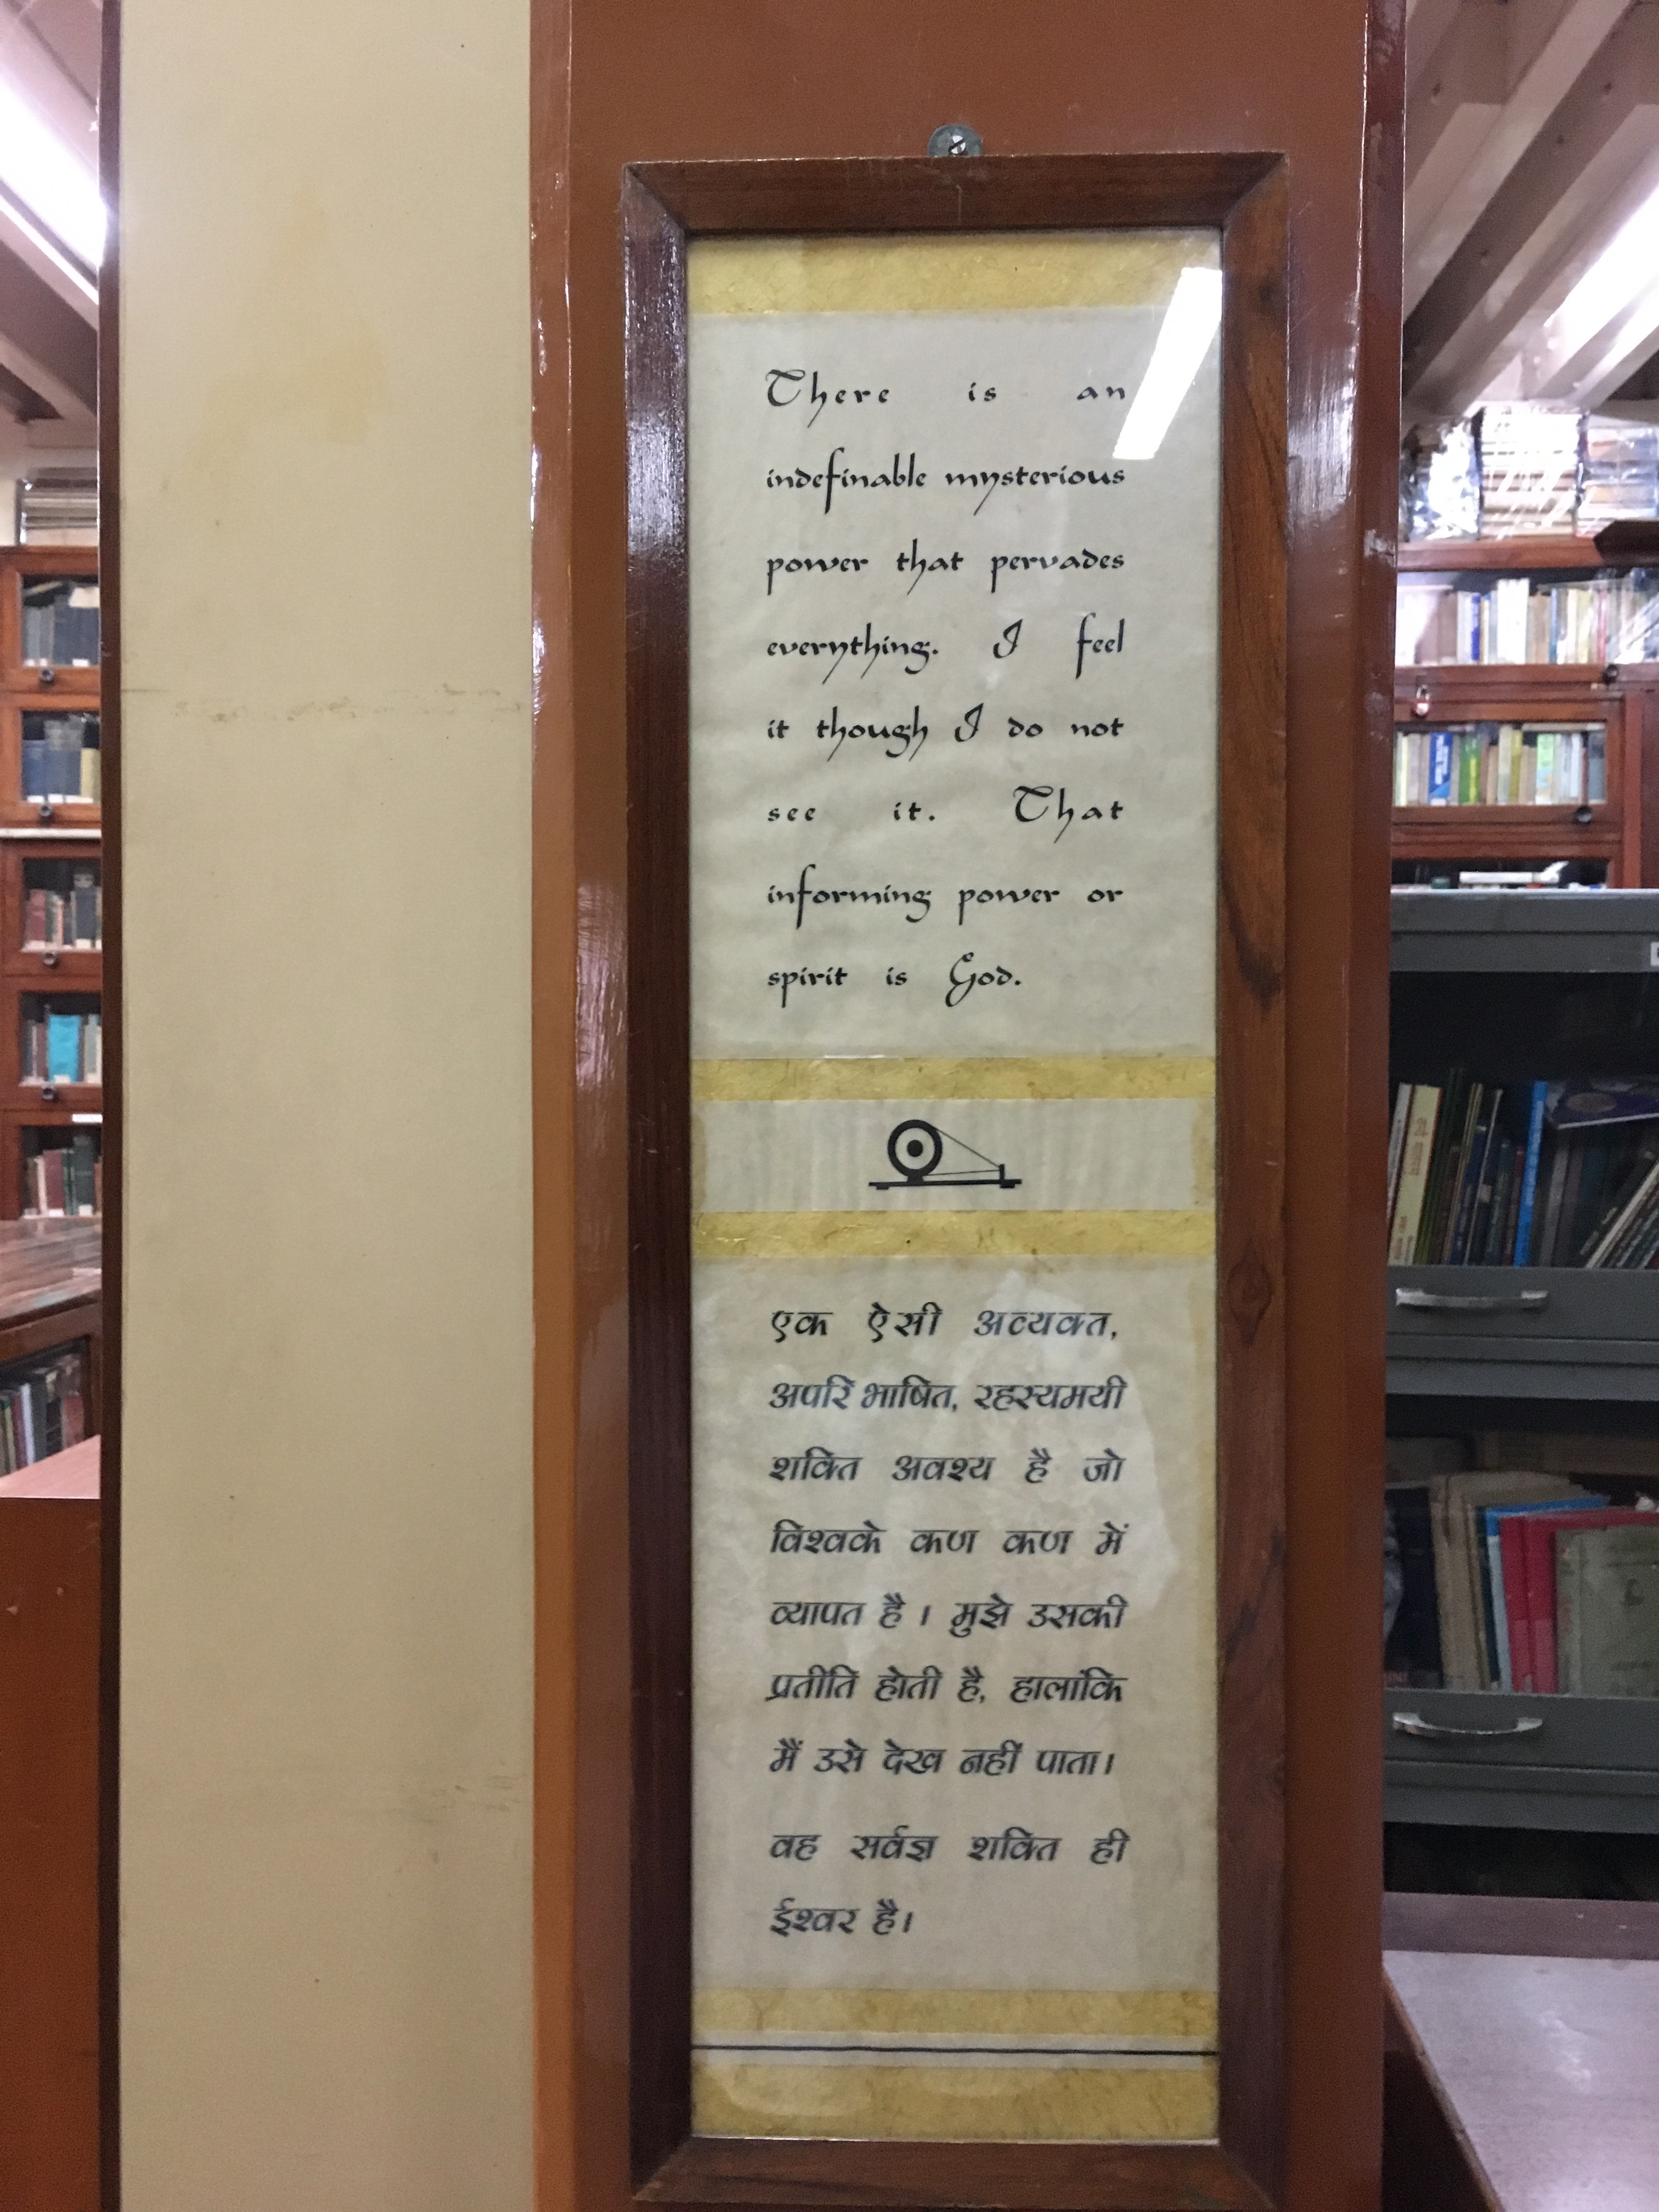 There is an
indefinable mysterious
power that pervades
everything. I feel
it though I do not
see it. That
informing power or
spirit is God.
एक ऐसी अव्यक्त,
अपरिभाषित, रहस्यमयी
शक्ति अवश्य है जो
विश्वके कण कण में
व्यापत है । मुझे उसकी
प्रतीति होती है, हालांकि
मैं उसे देख नहीं पाता।
वह सर्वज्ञ शक्ति ही
ईश्वर है।